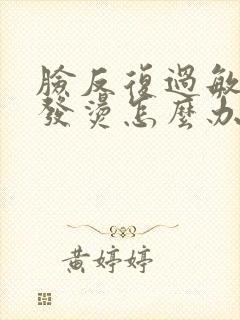 臉反復過敏
發燙怎麼办
黃婷婷